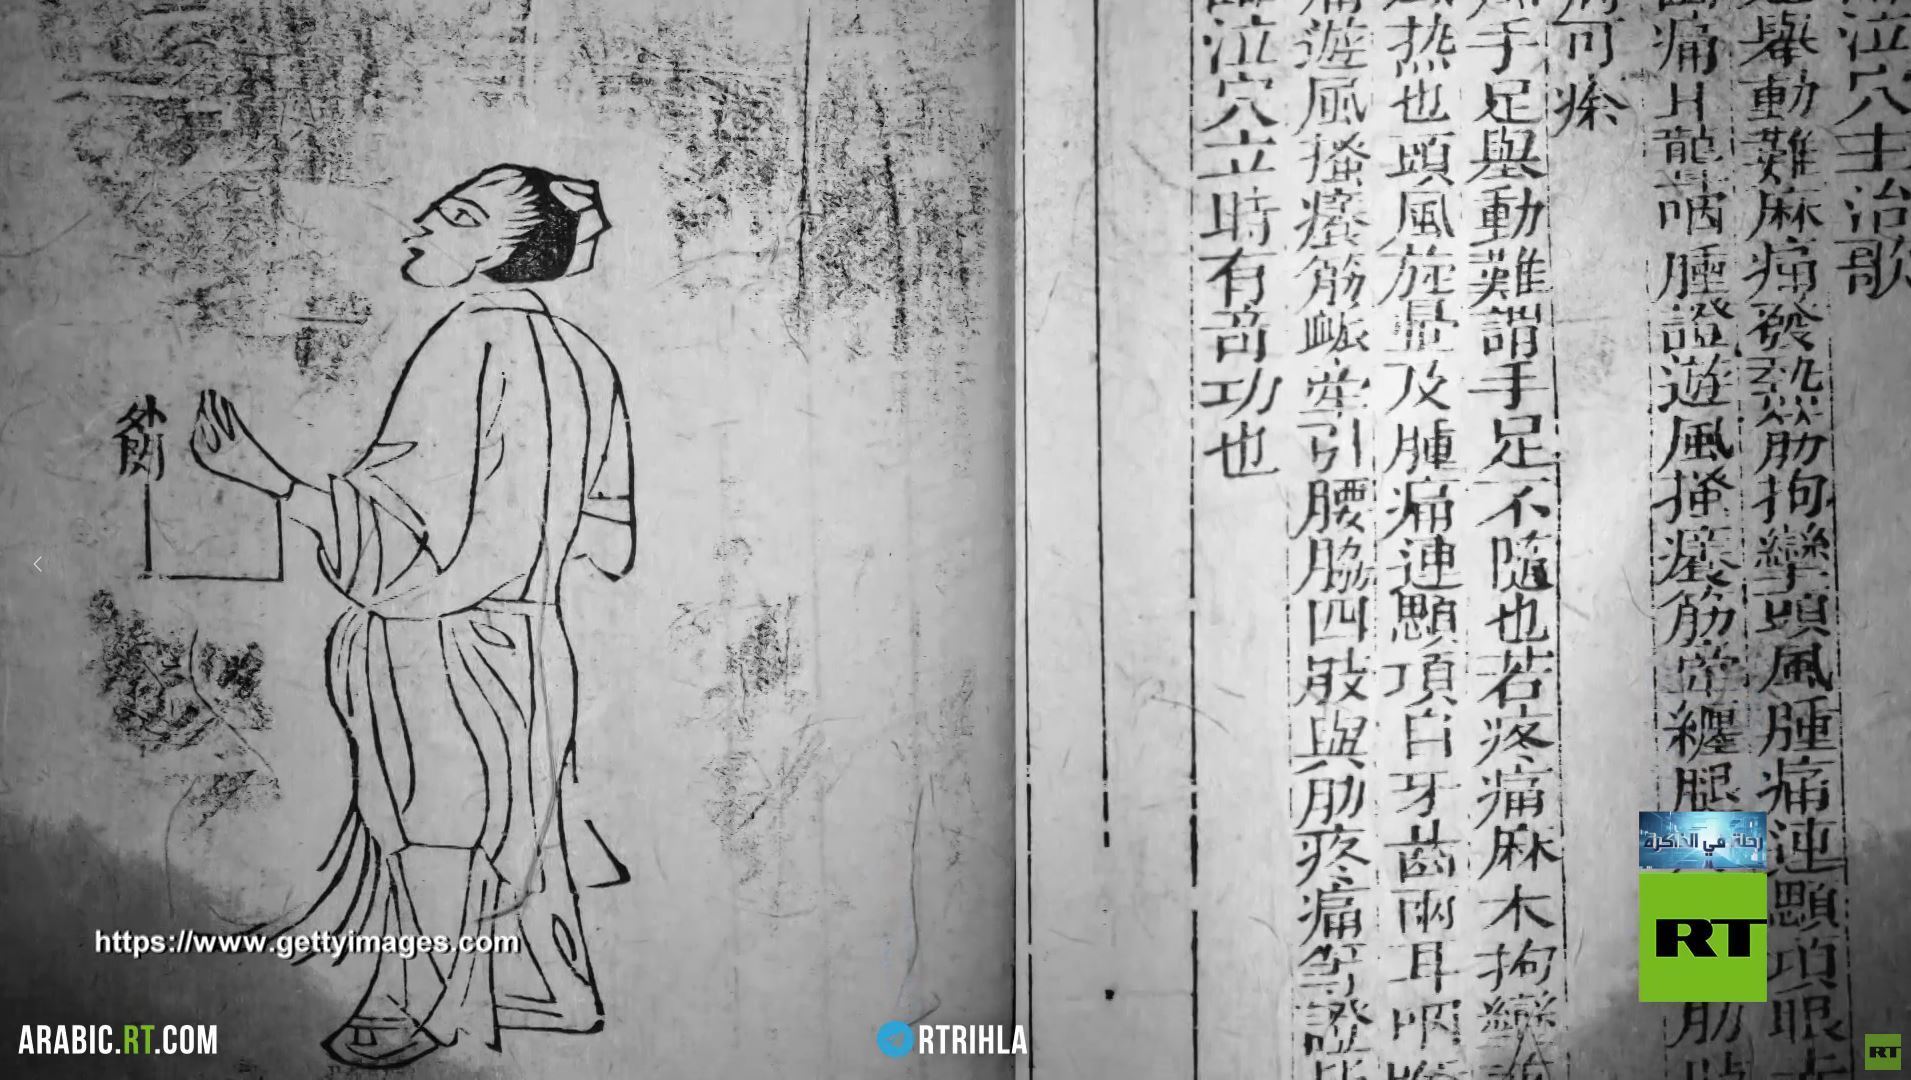 泣穴主治歌
舉動難麻痛發熱筋拘攣頭風腫痛連顋項眼
痛耳聾咽腫證遊風搔癢筋牽纏腿
可瘵
手足舉動難謂手足不隨也若疼痛麻木拘攣
热也頭風旋暈及腫痛連顋項目牙齒兩耳咽
遊風搔癢筋衇牽引腰脇四肢與肋疼痛等證
泣穴立時有奇功也
外關
https://www.gettyimages.com
رحلة في الذاكرة
RT
ARABIC.RT.COM
RTRIHLA
RT